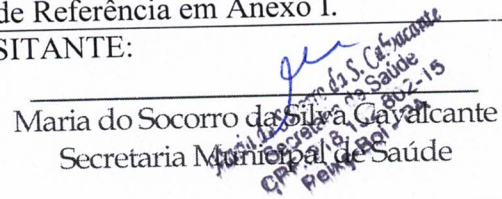 de Referência em Anexo I.
SITANTE:
Maria do Socorro da Silva Cavalcante
Secretaria Municipal de Saúde
da S. Cavalcante
Secretaria de Saúde
CPF:
-15